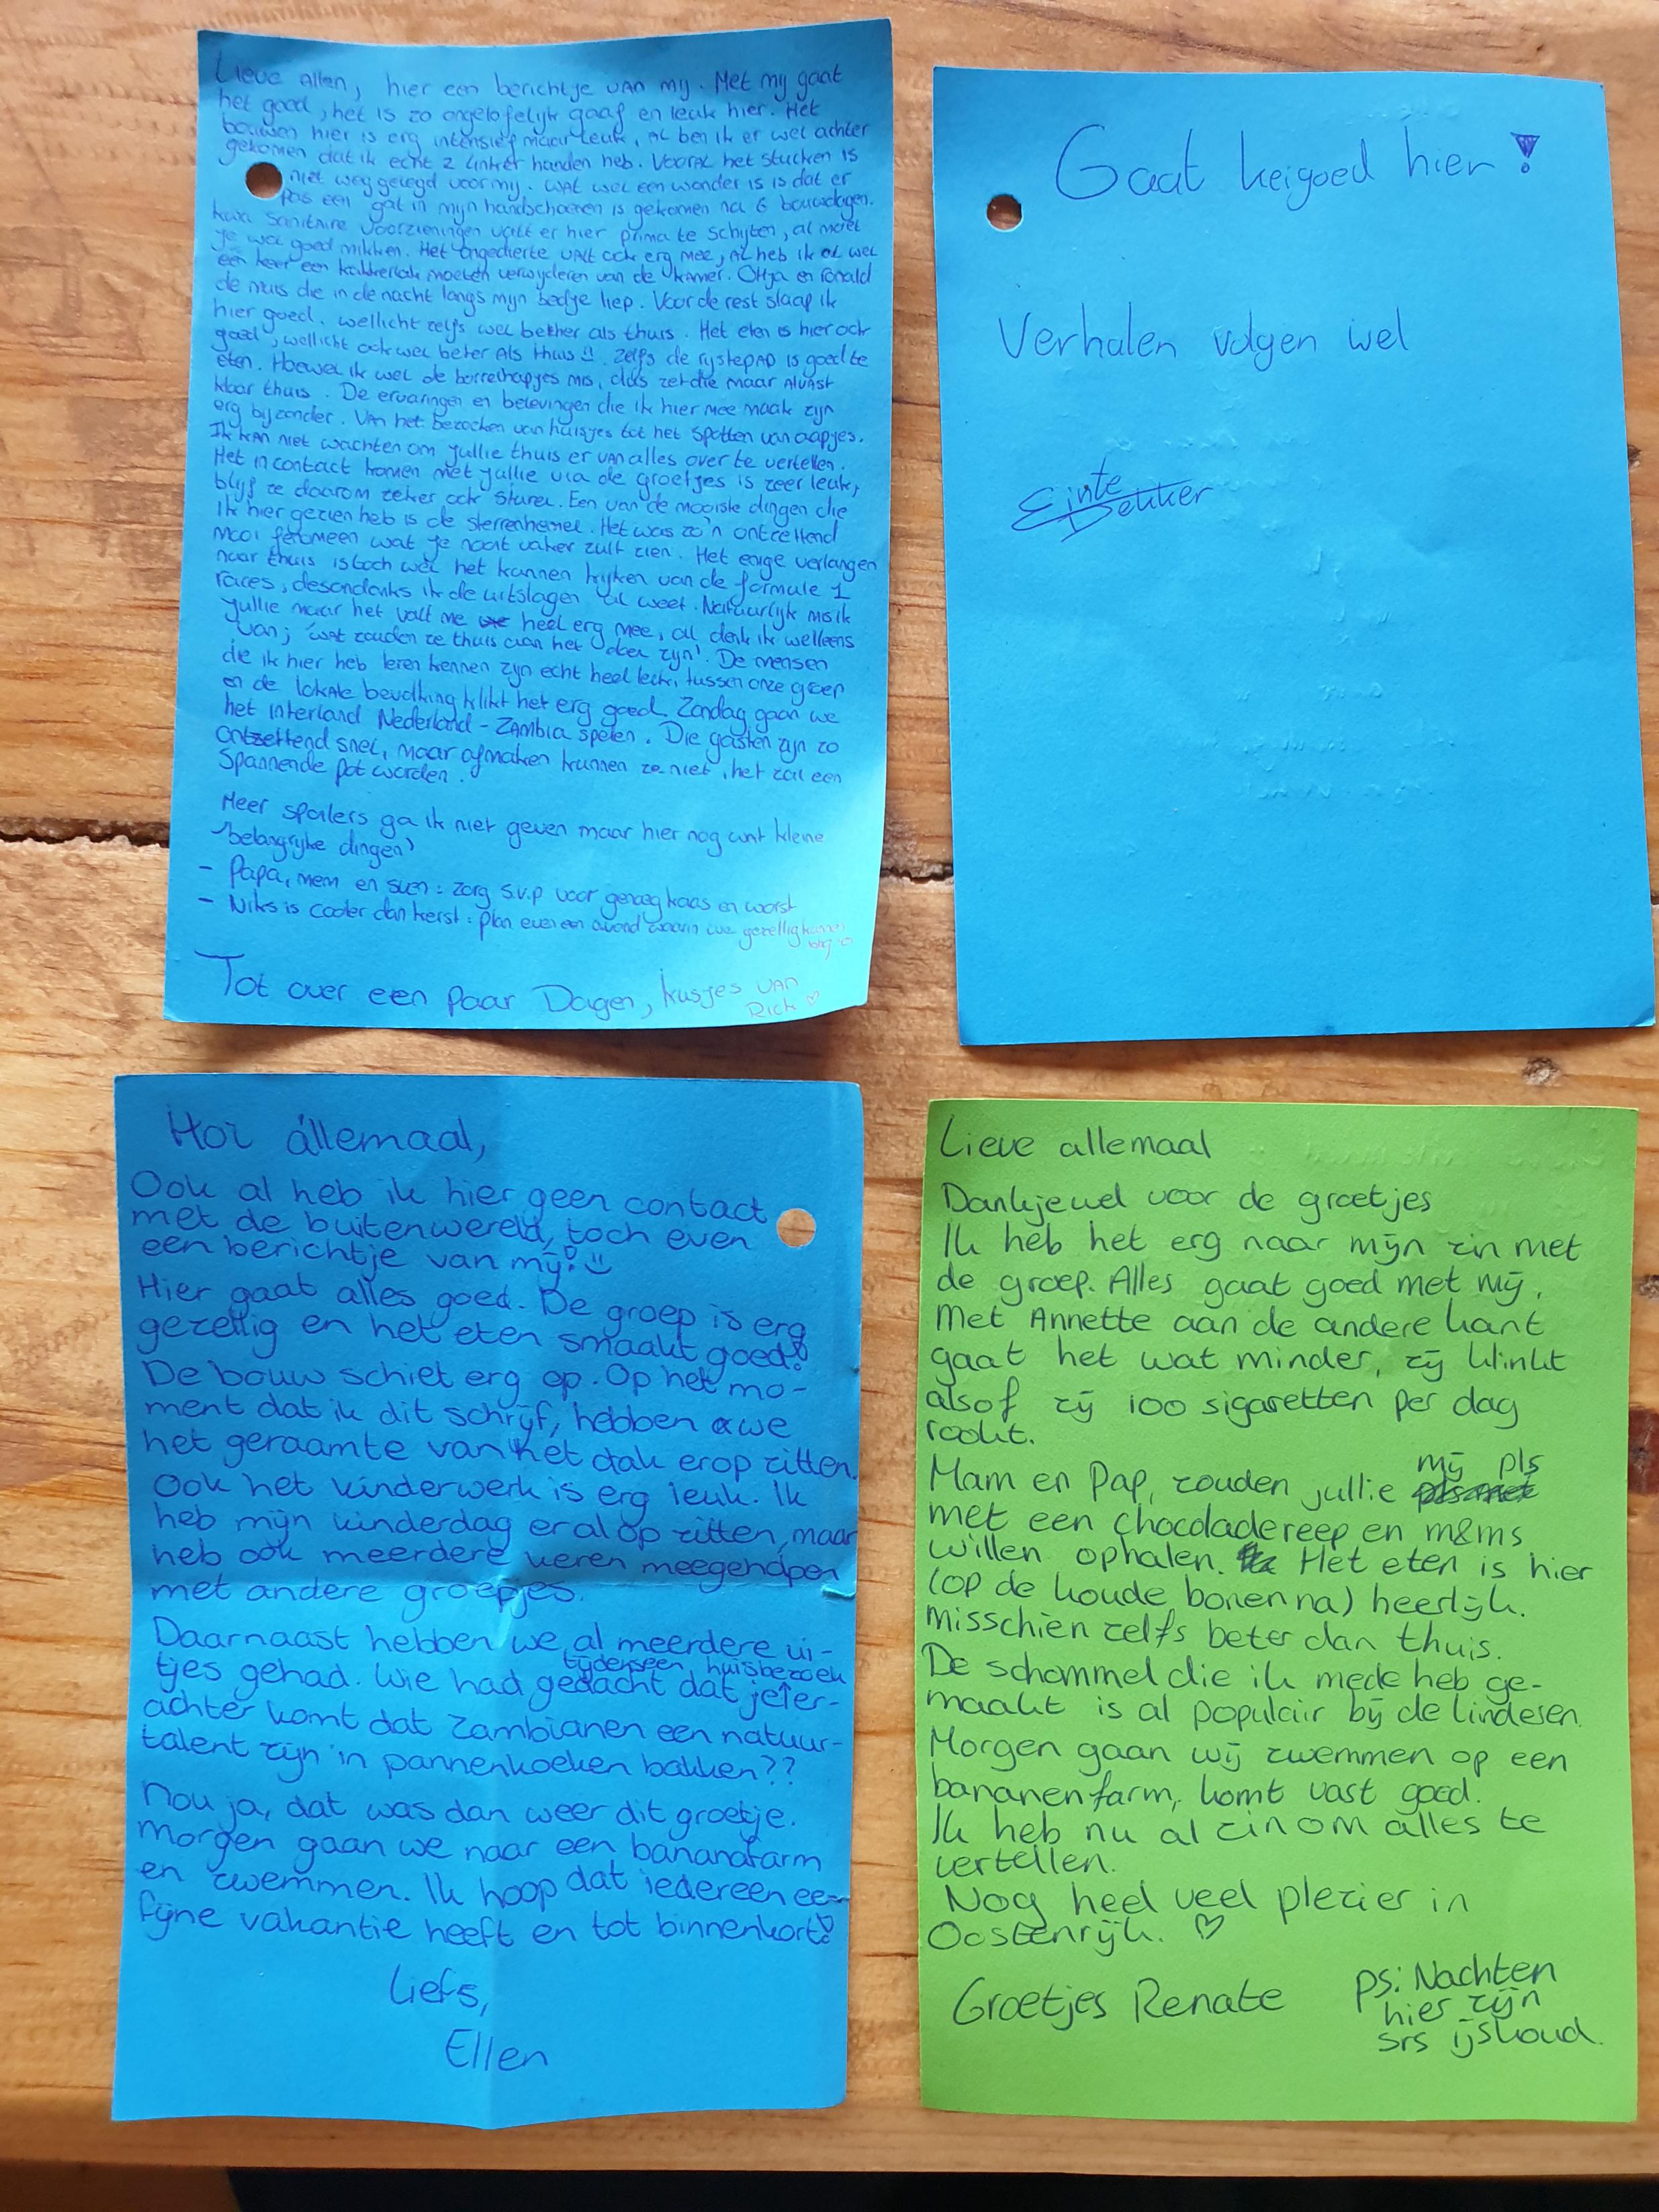 Lieve Allen, hier een berichtje van mij. Met mij gaat
het goed, het is zo ongelofelijk gaaf en leuk hier. Het
bouwen hier is erg intensief maar leuk, al ben ik er wel achter
gekomen dat ik echt 2 linker handen heb. Vooral het stucken is
niet weggelegd voor mij. Wat wel een wonder is is dat er
pas een gat in mijn handschoenen is gekomen na 6 bouwdagen.
kwa sanitaire voorzieningen valt er hier prima te schijten, al moet
je wel goed mikken. Het ongedierte valt ook erg mee, al heb ik al wel
één keer een kakkerlak moeten verwijderen van de kamer. Ohja en ronald
de muis die in de nacht langs mijn bedje liep. Voor de rest slaap ik
hier goed, wellicht zelfs wel bether als thuis. Het eten is hier ook
goed, wellicht ook wel beter als thuis !! zelfs de rijstepap is goed te
eten. Hoewel ik wel de borrelhapjes mis, dus zet die maar alvast
klaar thuis. De ervaringen en belevingen die ik hier mee maak zijn
erg bijzonder. Van het bezoeken van huisjes tot het spotten van aapjes.
Ik kan niet wachten om jullie thuis er van alles over te vertellen.
Het in contact komen met jullie via de groetjes is zeer leuk,
blijf ze daarom zeker ook sturen. Een van de mooiste dingen die
Ik hier gezien heb is de sterrenhemel. Het was zo'n ontzettend
mooi fenomeen wat je nooit vaker zult zien. Het enige verlangen
naar thuis is toch wel het kunnen kijken van de formule 1
races, desondanks ik de uitslagen al weet. Natuurlijk mis ik
jullie maar het valt me heel erg mee, al denk ik welleens
van; 'wat zouden ze thuis aan het doen zijn'. De mensen
die ik hier heb leren kennen zijn echt heel leuk, tussen onze groep
en de lokale bevolking klikt het erg goed. Zondag gaan we
het interland Nederland - Zambia spelen. Die gasten zijn zo
ontzettend snel, maar afmaken kunnen ze niet, het zal een
Spannende pot worden.
Meer spoilers ga ik niet geven maar hier nog wat kleine
'belangrijke dingen'
- Papa, mem en sven: zorg s.v.p voor genoeg kaas en worst
- Niks is cooler dan kerst: plan even een avond waarin we gezellig kunnen
Tot over een paar Dagen, kusjes van
Rick ♡
Gaat keigoed hier!
Verhalen volgen wel
Einte
Dekker
Hoi allemaal,
Ook al heb ik hier geen contact
met de buitenwereld, toch even
een berichtje van mij! :)
Hier gaat alles goed. De groep is erg
gezellig en het eten smaakt goed!
De bouw schiet erg op. Op het mo-
ment dat ik dit schrijf, hebben we
het geraamte van het dak erop zitten.
Ook het kinderwerk is erg leuk. Ik
heb mijn kinderdag er al op zitten, maar
heb ook meerdere keren meegeholpen
met andere groepjes.
Daarnaast hebben we al meerdere ui-
tjes gehad. Wie had gedacht dat je tijdens een huisbezoek er-
achter komt dat Zambianen een natuur-
talent zijn in pannenkoeken bakken??
Nou ja, dat was dan weer dit groetje.
Morgen gaan we naar een bananafarm
en zwemmen. Ik hoop dat iedereen een
fijne vakantie heeft en tot binnenkort!
Liefs,
Ellen
Lieve allemaal
Dankjewel voor de groetjes
Ik heb het erg naar mijn zin met
de groep. Alles gaat goed met mij,
Met Annette aan de andere kant
gaat het wat minder, zij klinkt
alsof zij 100 sigaretten per dag
rookt.
Mam en Pap, zouden jullie mij pls
met een chocoladereep en m&ms
willen ophalen. Het eten is hier
(op de koude bonen na) heerlijk.
misschien zelfs beter dan thuis.
De schommel die ik mede heb ge-
maakt is al populair bij de kinderen.
Morgen gaan wij zwemmen op een
bananenfarm, komt vast goed.
Ik heb nu al zin om alles te
vertellen.
Nog heel veel plezier in
Oostenrijk. ♡
Groetjes Renate
ps: Nachten
hier zijn
srs ijskoud.